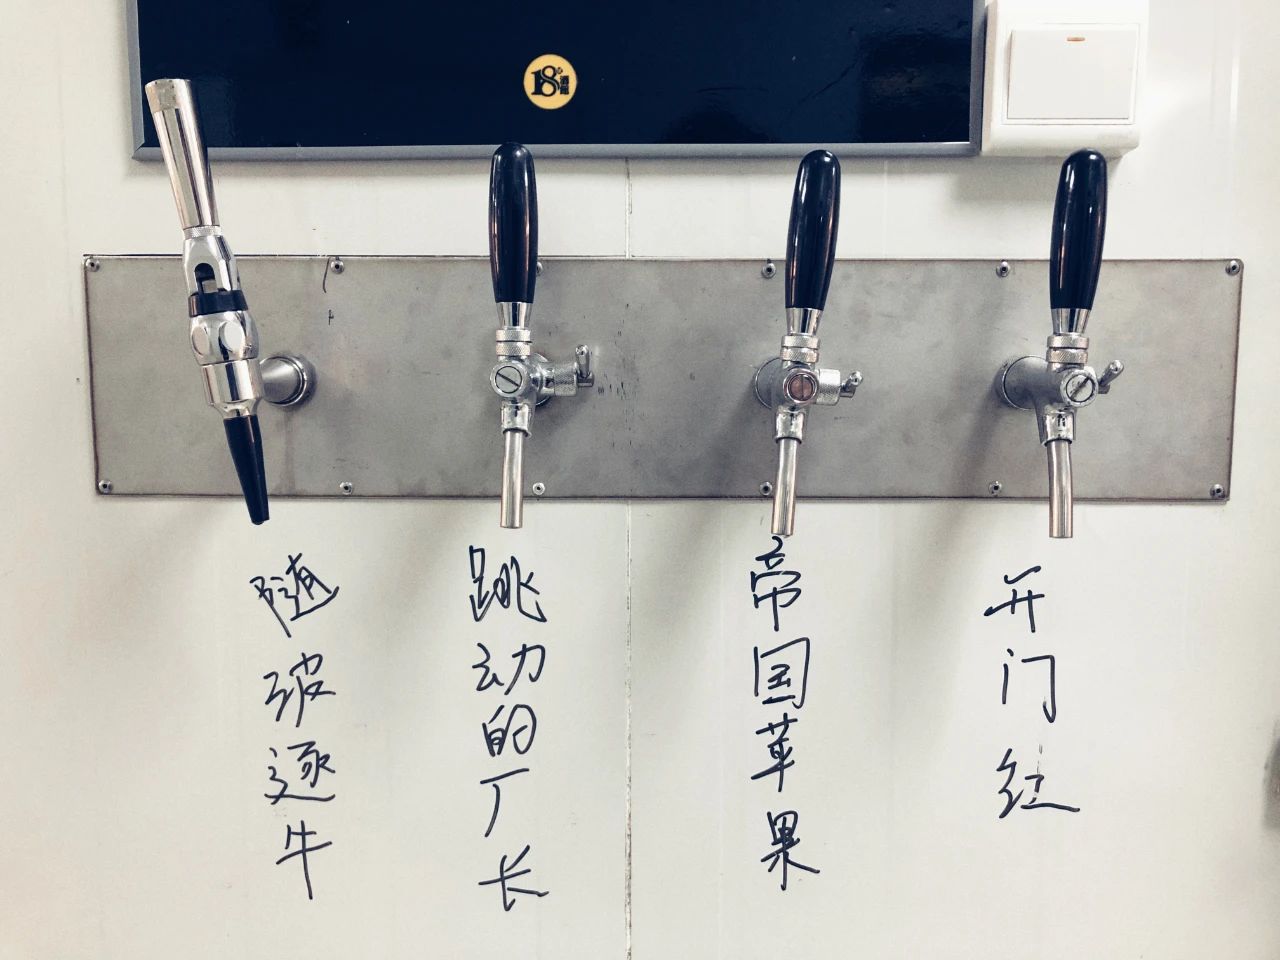 18
酒館
随波逐牛
跳动的厂长
帝国苹果
开门红